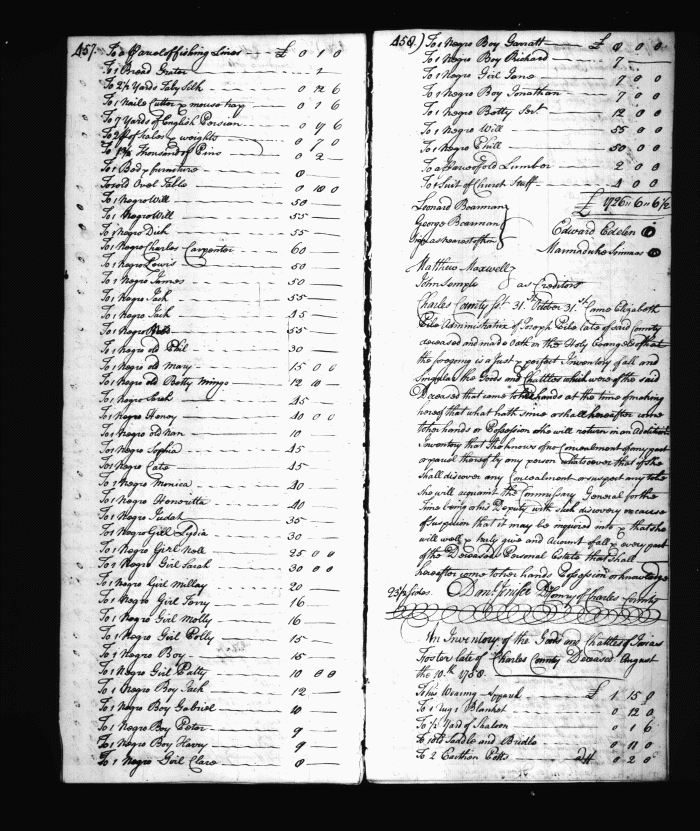 457.
To a Parcel of fishing Lines £ 0 1 0
To 1 Bread Grater 1
To 2½ Yards Taby Silk 0 12 6
To 1 Nail Cutter & mouse trap 0 1 6
To 7 Yards of English Persian 0 9 6
To 2 of Scales & weights 0 7 0
To Thousand of Pins 0 2
To 1 Body furniture 0
To 1 old Oval Table 0 10 0
To 1 Negro Will 50
To 1 Negro Will 55
To 1 Negro Dick 55
To 1 Negro Charles Carpenter 60
To 1 Negro Lewis 50
To 1 Negro James 50
To 1 Negro Jack 55
To 1 Negro Jack 45
To 1 Negro 55
To 1 Negro old Phil 30
To 1 Negro old Mary 15 0 0
To 1 Negro old Betty Mingo 12 10
To 1 Negro Sarah 45
To 1 Negro Henny 40 0 0
To 1 Negro old Nan 10
To 1 Negro Sophia 45
To 1 Negro Cate 45
To 1 Negro Monica 40
To 1 Negro Honoritta 40
To 1 Negro Judah 35
To 1 Negro Girl Lydia 30
To 1 Negro Girl Nell 25 0 0
To 1 Negro Girl Sarah 30 0 0
To 1 Negro Girl Milley 20
To 1 Negro Girl Terry 16
To 1 Negro Girl Molly 16
To 1 Negro Girl Polly 15
To 1 Negro Boy 15
To 1 Negro Girl Patty 10 0 0
To 1 Negro Boy Jack 12
To 1 Negro Boy Gabriel 10
To 1 Negro Boy Peter 9
To 1 Negro Boy Harry 9
To 1 Negro Girl Clare 8
458.) To 1 Negro Boy Garratt £ 8 0 0
To 1 Negro Boy Richard 7
To 1 Negro Girl Jane 7 0 0
To 1 Negro Boy Jonathan 7 0 0
To 1 Negro Betty Sert. 12 0 0
To 1 Negro Will 55 0 0
To 1 Negro Phill 50 0 0
To a Parcel of old Lumber 2 0 0
To 1 Suit of Church Stuff 4 0 0
£ 1726 " 6 " 6½
Leonard Boarman
George Boarman
Signed as nearest of kin
Edward Edelen
Marmaduke Simms
Matthew Maxwell
John Semple
as Creditors
Charles County Sct. 31st October 31st Came Elizabeth
Pile Administratrix of Joseph Pile late of said County
deceased and made Oath on the Holy Evangels that
the foregoing is a just & perfect Inventory of all and
singular the Goods and Chattles which were of the said
Deceased that came to her hands at the time of making
hereof that what hath since or shall hereafter come
to her hands or Possession she will return in an Additional
Inventory that she knows of no Concealment of any part
or parcel thereof by any person whatsoever that if she
shall discover any Concealment or suspect any to be
she will acquaint the Commissary General for the
time being or his Deputy with such discovery or cause
of suspicion that it may be inquired into & that she
will well & truly give and Account of all & every part
of the Deceaseds Personal Estate that shall
hereafter come to her hands Possession or knowledge
23½ sides. Danl. Jenifer D Comry of Charles County
An Inventory of the Goods and Chattles of
Foster late of Charles County Deceased August
the 10th. 1758.
To his Wearing Apparel £ 1 15 0
To 1 Rug 1 Blanket 0 12 0
To ½ Yard of Shaloon 0 1 6
To 1 old Saddle and Bridle 0 11 0
To 2 Earthen Potts 0 2 0